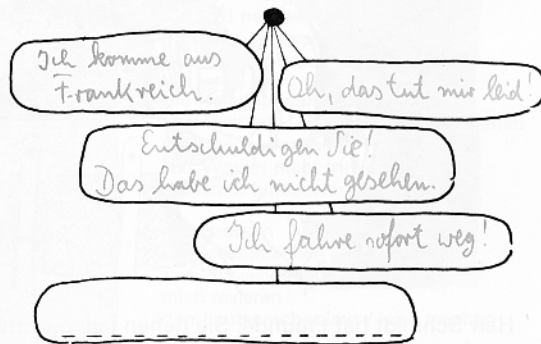 Ich komme aus
Frankreich.
Oh, das tut mir leid!
Entschuldigen Sie!
Das habe ich nicht gesehen.
Ich fahre sofort weg!